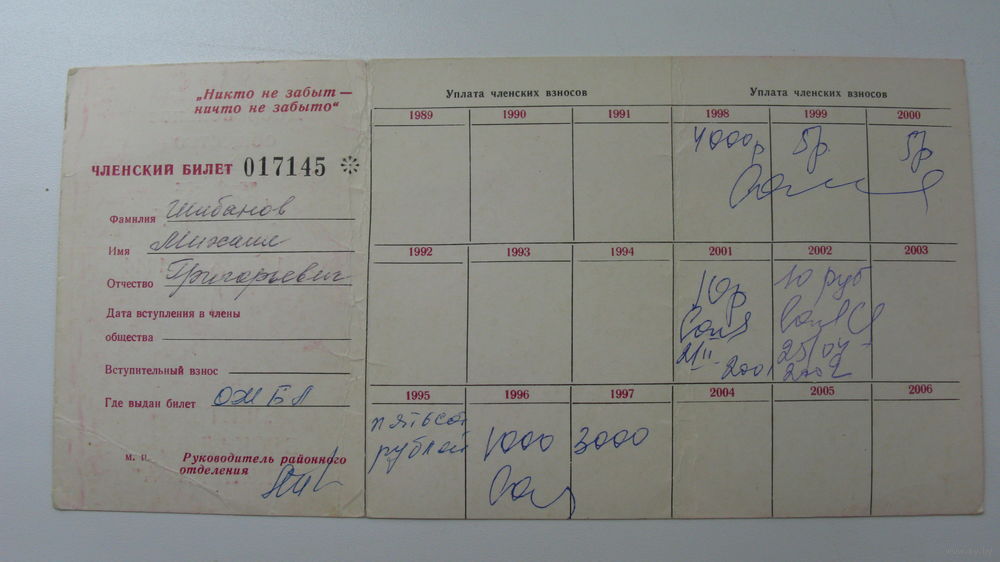 „Никто не забыт —
ничто не забыто“
ЧЛЕНСКИЙ БИЛЕТ 017145
Фамилия Шибанов
Имя Михаил
Отчество Григорьевич
Дата вступления в члены
общества
Вступительный взнос
Где выдан билет
м. п. Руководитель районного
отделения
Уплата членских взносов
1989 1990 1991
1992 1993 1994
1995 1996 1997
пятьсот
рублей 1000 3000
Уплата членских взносов
1998 1999 2000
4000р 5р 5р
2001 2002 2003
10р 10 руб
21 II 25/04
2001 2002
2004 2005 2006